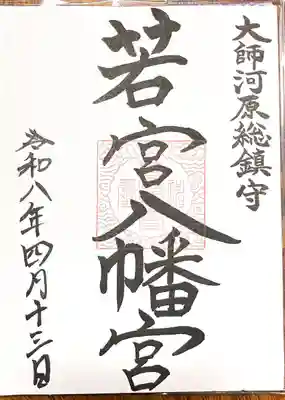 大師河原総鎮守
若宮八幡宮
令和八年四月十三日